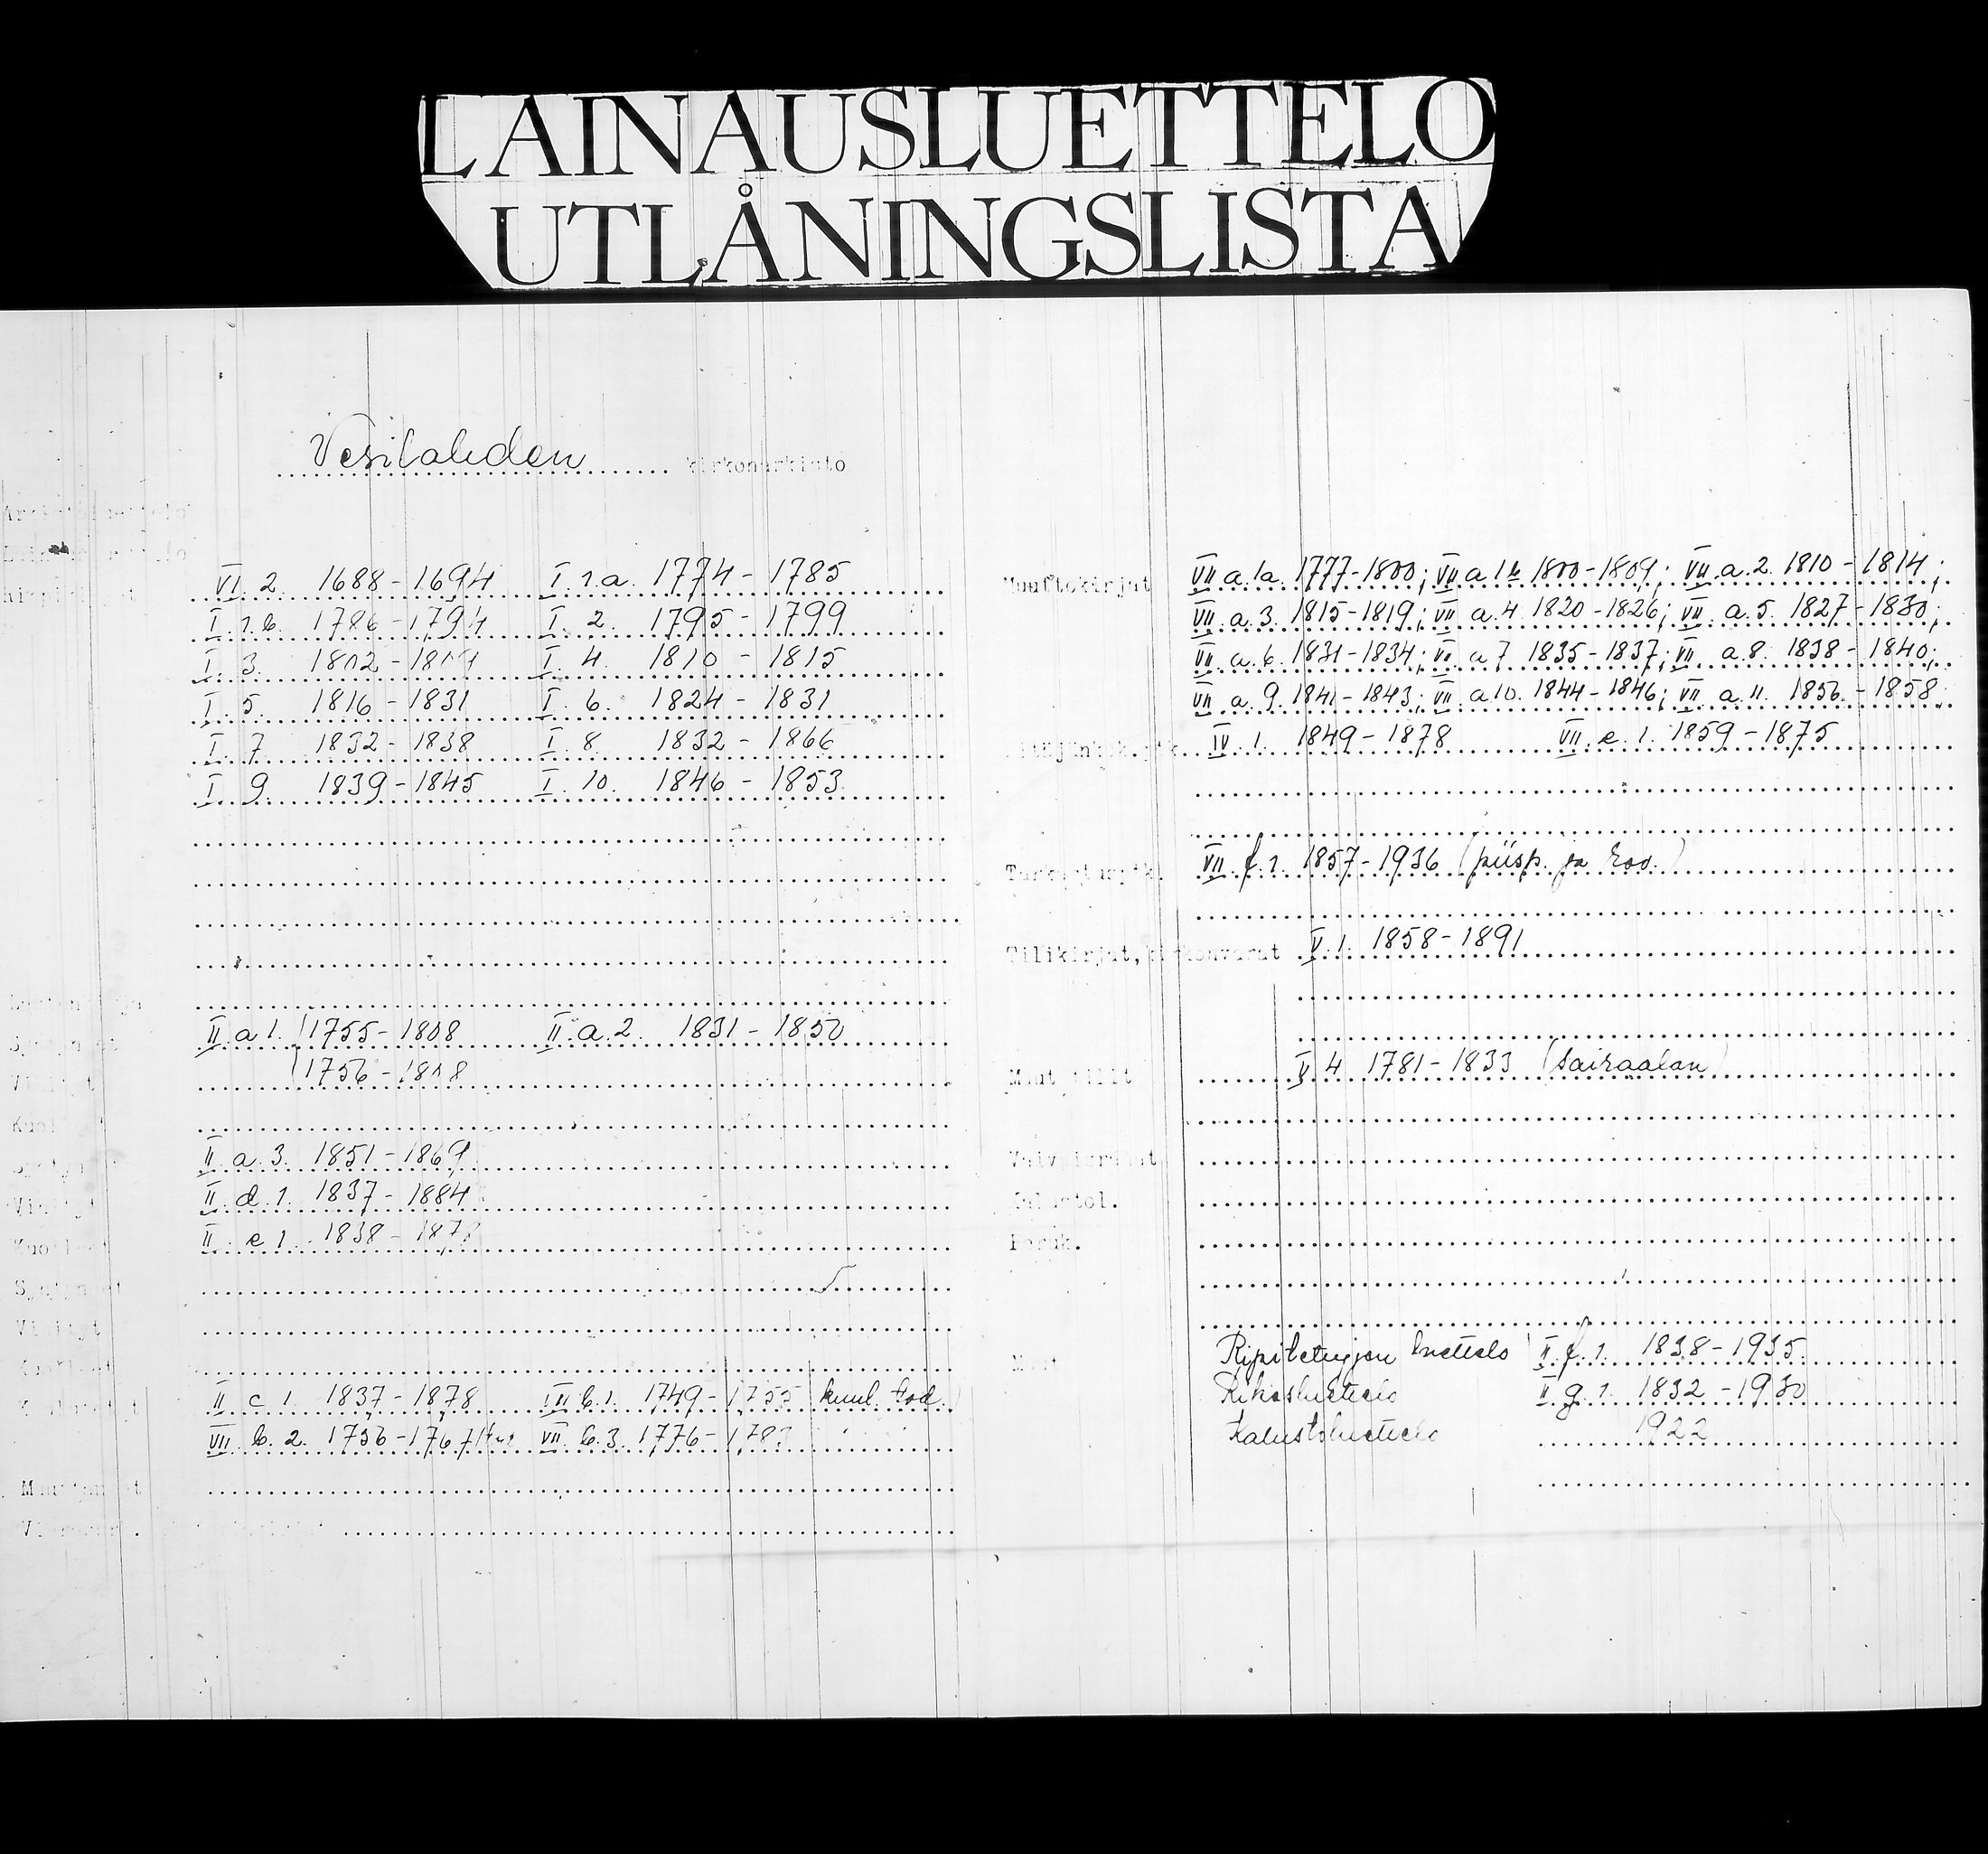 LAINAUSLUETTELO
UTLÅNINGSLISTA
Vesilahden kirkonarkisto
VI. 2. 1688-1694 I. 1.a. 1774-1785
I. 1.b. 1786-1794 I. 2. 1795-1799
I. 3. 1802-1809 I. 4. 1810-1815
I. 5. 1816-1831 I. 6. 1824-1831
I. 7. 1832-1838 I. 8. 1832-1866
I. 9. 1839-1845 I. 10. 1846-1853
II. a 1. 1755-1808 II. a. 2. 1831-1850
1756-1808
II. a. 3. 1851-1869
II. d. 1. 1837-1884
II. e 1. 1838-1878
II. c. 1. 1837-1878 b. 1. 1749-1755 kuul. tod.
VII. b. 2. 1756-1767 VII. b. 3. 1776-1783
Muuttokirjat VII a. 1a. 1777-1800; VII a 1b 1800-1809; VII. a. 2. 1810-1814;
VII. a. 3. 1815-1819; VII. a. 4. 1820-1826; VII. a. 5. 1827-1830;
VII. a. 6. 1831-1834; VII a 7 1835-1837; VII. a. 8. 1838-1840;
VII a. 9. 1841-1843; VII. a 10. 1844-1846; VII. a. 11. 1856-1858
IV. 1. 1849-1878 VII. e. 1. 1859-1875
VII. f. 1. 1857-1936 (piisp. ja rov.)
Tilikirjat, kirkonvarat V. 1. 1858-1891
Muut tilit V. 4 1781-1833 (sairaalan)
Ripiltetyjen luettelo II. f. 1. 1838-1935
Rikosluettelo II. g. 1. 1832-1930
Kalustoluettelo 1922